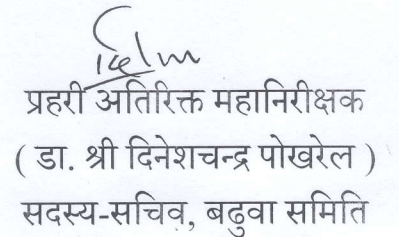 प्रहरी अतिरिक्त महानिरीक्षक
( डा. श्री दिनेशचन्द्र पोखरेल )
सदस्य-सचिव, बढुवा समिति